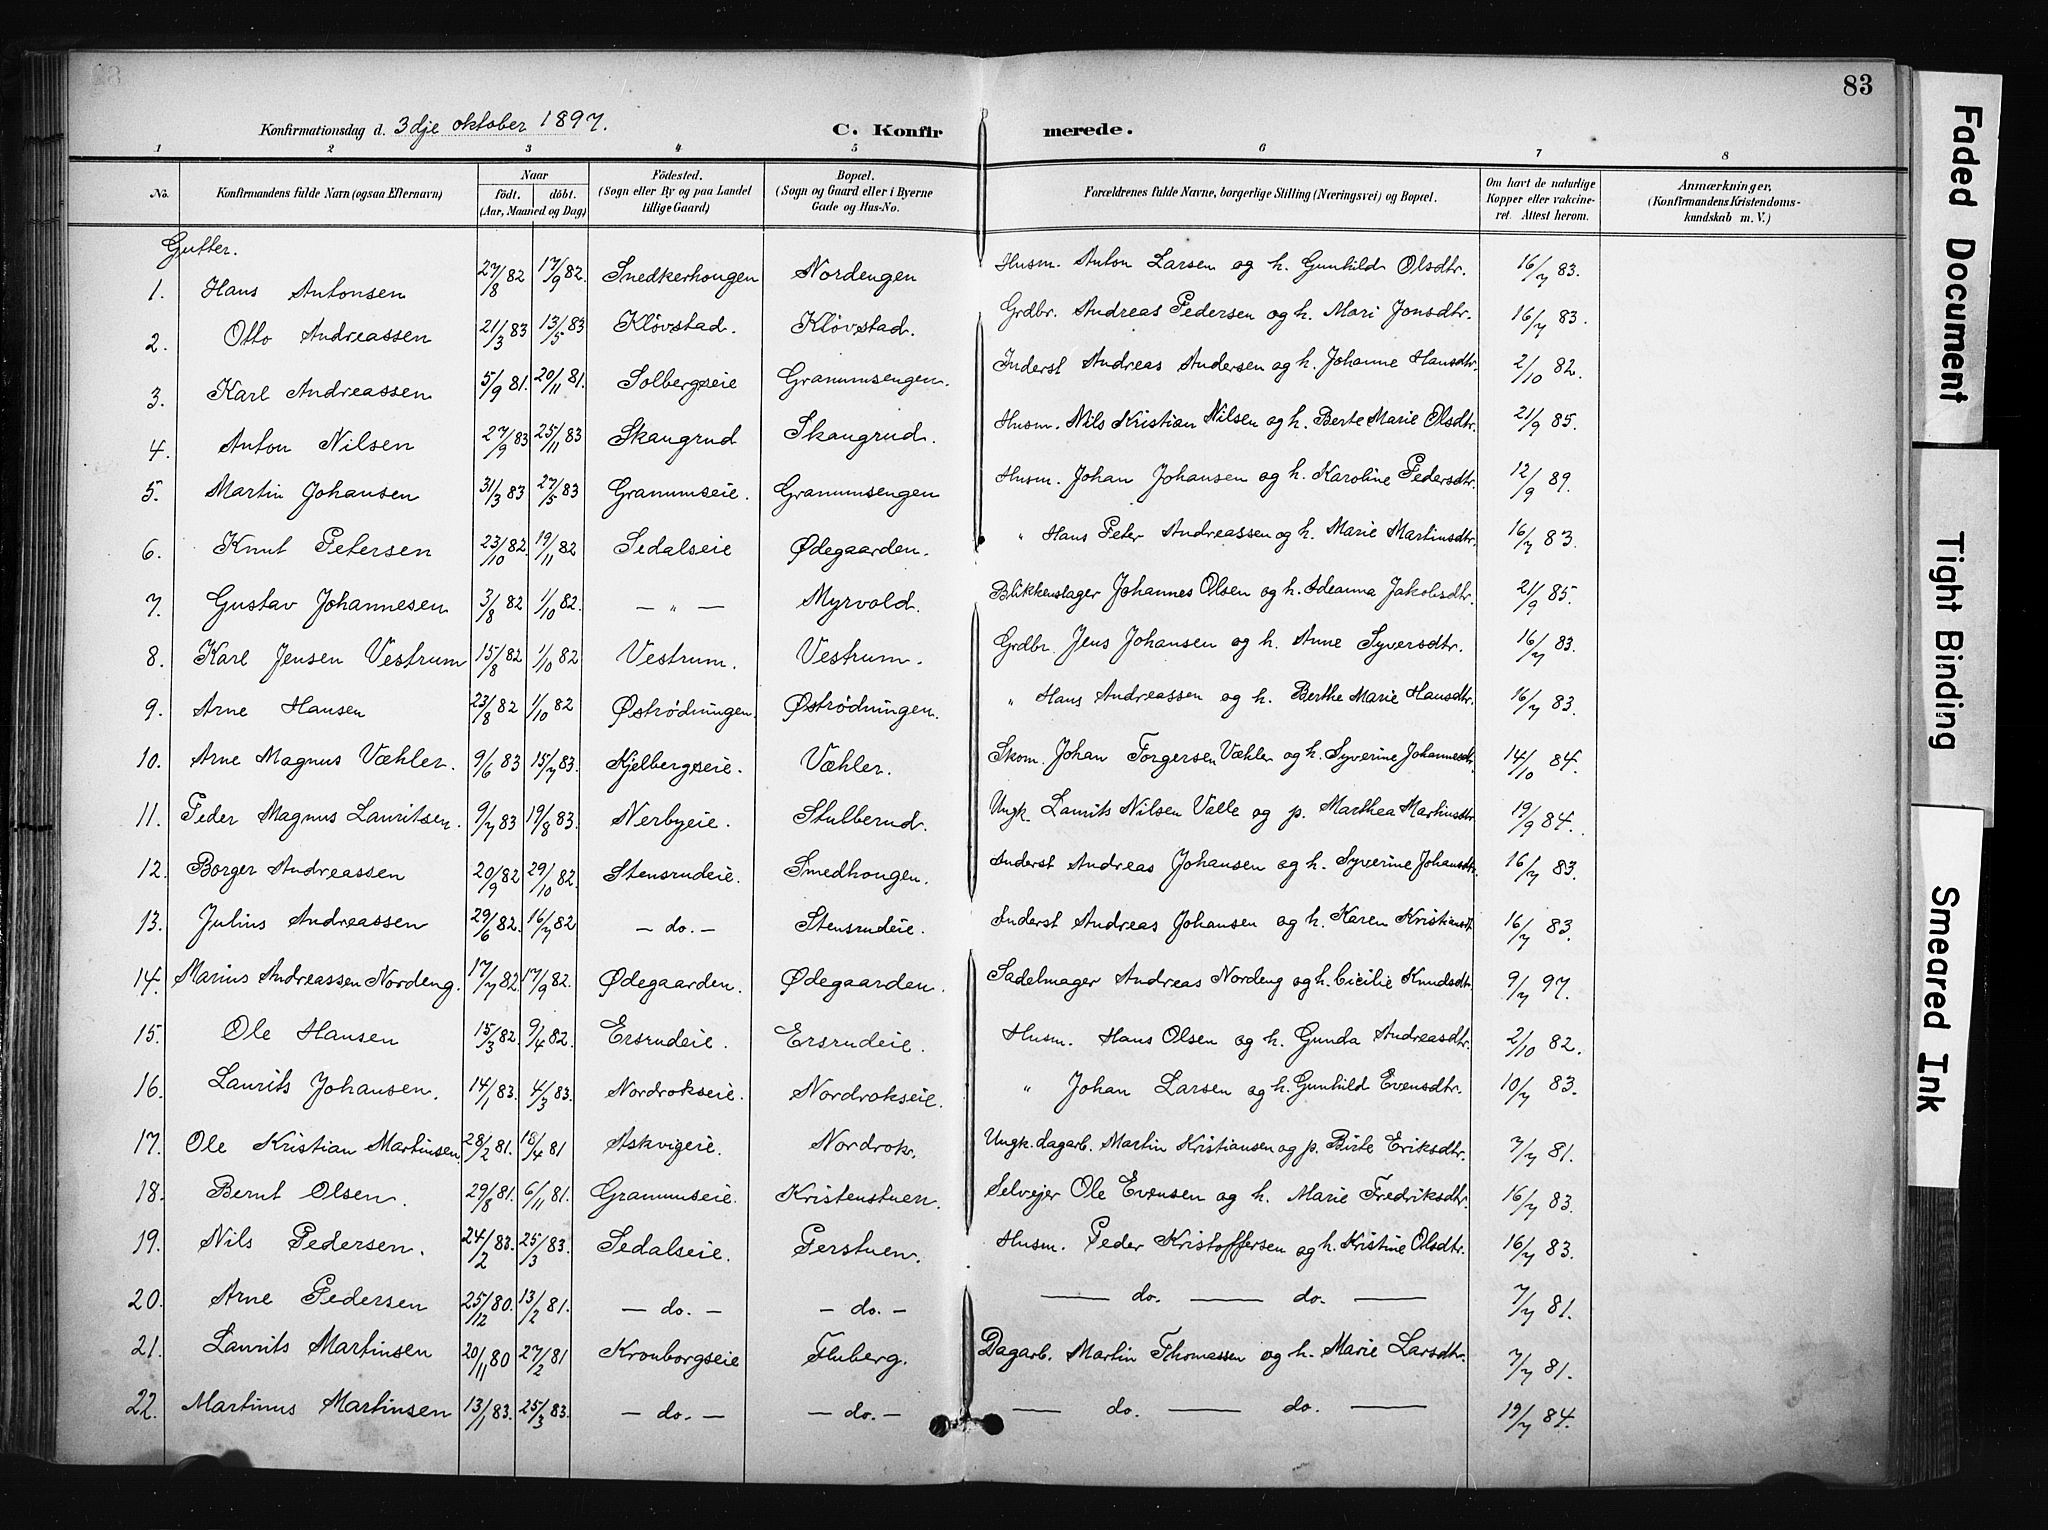 83
Konfirmationsdag d. 3dje oktober 1897. C. Konfirmerede.
1 2 3 4 5 6 7 8
No. Konfirmandens fulde Navn (ogsaa Efternavn) Naar födt. döbt. (Aar, Maaned og Dag) Födested. (Sogn eller By og paa Landet tillige Gaard) Bopæl. (Sogn og Gaard eller i Byerne Gade og Hus-No. Forældrenes fulde Navne, borgerlige Stilling (Næringsvei) og Bopæl. Om havt de naturlige Kopper eller vakcineret. Attest herom. Anmærkninger. (Konfirmandens Kristendomskundskab m. V.)
Gutter.
1. Hans Antonsen 27/8 82 17/9 82. Snedkerhougen Nordengen Husm. Anton Larsen og h. Gunhild Olsdtr. 16/7 83.
2. Otto Andreassen 21/3 83 13/5 83 Klövstad. Klövstad. Grdbr. Andreas Pedersen og h. Mari Jonsdtr. 16/7 83.
3. Karl Andreassen 5/9 81. 20/11 81. Solbergseie Granumsengen. Inderst Andreas Andersen og h. Johanne Hansdtr. 2/10 82.
4. Anton Nilsen 27/9 83 25/11 83 Skaugrud Skaugrud. Husm. Nils Kristian Nilsen og h. Berte Marie Olsdtr. 21/9 85.
5. Martin Johansen 31/3 83 27/5 83 Granumseie. Granumsengen Husm. Johan Johansen og h. Karoline Pedersdtr. 12/9 89.
6. Knut Petersen 23/10 82. 19/11 82 Sedalseie Ødegaarden. " Hans Peter Andreassen og h. Marie Martinsdtr. 16/7 83.
7. Gustav Johannesen 3/8 82 1/10 82. — " — Myrvold. Blikkenslager Johannes Olsen og h. Ideanna Jakobsdtr. 21/9 85.
8. Karl Jensen Vestrum 15/8 82 1/10 82 Vestrum. Vestrum. Grdbr. Jens Johansen og h. Anne Syversdtr. 16/7 83.
9. Arne Hansen 23/8 82 1/10 82 Øströdningen. Øströdningen. " Hans Andreassen og h. Berthe Marie Hansdtr. 16/7 83.
10. Arne Magnus Væhler. 9/6 83 15/7 83. Kjelbergseie. Væhler. Skom. Johan Torgersen Væhler og h. Syverine Johannesdtr. 14/10 84.
11. Peder Magnus Lauritsen. 9/7 83 19/8 83. Nerbyeie. Stulberud. Ungk. Laurits Nilsen Valle og p. Marthea Martinsdtr. 19/9 84.
12. Borger Andreassen 20/9 82 29/10 82. Stensrudeie. Smedhougen. Inderst Andreas Johansen og h. Syverine Johansdtr. 16/7 83.
13. Julius Andreassen 29/6 82. 16/7 82 — do. — Stensrudeie. Inderst Andreas Johansen og h. Karen Kristiansdt. 16/7 83.
14. Marius Andreassen Nordeng. 17/7 82. 17/9 82. Ødegaarden. Ødegaarden. Sadelmager Andreas Nordeng og h. Cicilie Knudsdtr. 9/7 97.
15. Ole Hansen 15/3 82. 9/4 82. Ersrudeie. Ersrudeie. Husm. Hans Olsen og h. Gunda Andreasdtr. 2/10 82.
16. Laurits Johansen. 14/1 83. 4/3 83. Nordrokseie. Nordrokseie. " Johan Larsen og h. Gunhild Evensdtr. 10/7 83.
17. Ole Kristian Martinsen. 28/2 81. 18/4 81 Askvigeie. Nordrok. Ungk. dagarb. Martin Kristiansen og p. Birte Eriksdtr. 7/7 81.
18. Bernt Olsen. 29/8 81. 6/11 81. Granumseie. Kristenstuen. Selvejer Ole Evensen og h. Marie Fredriksdtr. 16/7 83.
19. Nils Pedersen. 24/2 83. 25/3 83. Sedalseie. Perstuen. Husm. Peder Kristoffersen og h. Kristine Olsdtr. 16/7 83.
20. Arne Pedersen 25/12 80. 13/2 81. — do. — — do. — — do. — do. — 7/7 81.
21. Laurits Martinsen 20/11 80 27/2 81 Kronborgseie Fluberg. Dagarb. Martin Thomassen og h. Marie Larsdtr. 7/7 81.
22. Martinus Martinsen 13/1 83. 25/3 83. — do. — — do. — — do. — do. — 19/7 84.
Faded Document
Tight Binding
Smeared Ink